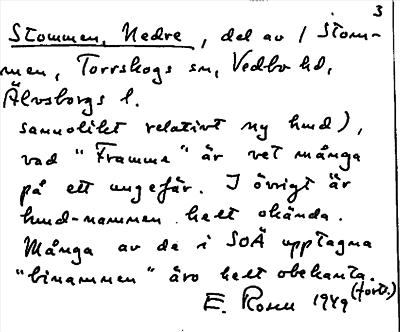 3
Stommen, Nedre, del av 1 Stom-
men, Torrskogs sn, Vedbo hd,
Älvsborgs l.
sannolikt relativt ny hmd),
vad "Framme" är vet många
på ett ungefär. I övrigt är
hmd-namnen helt okända.
Många av de i SOÄ upptagna
"binamnen" äro helt obekanta.
E. Rosell 1949 (forts.)